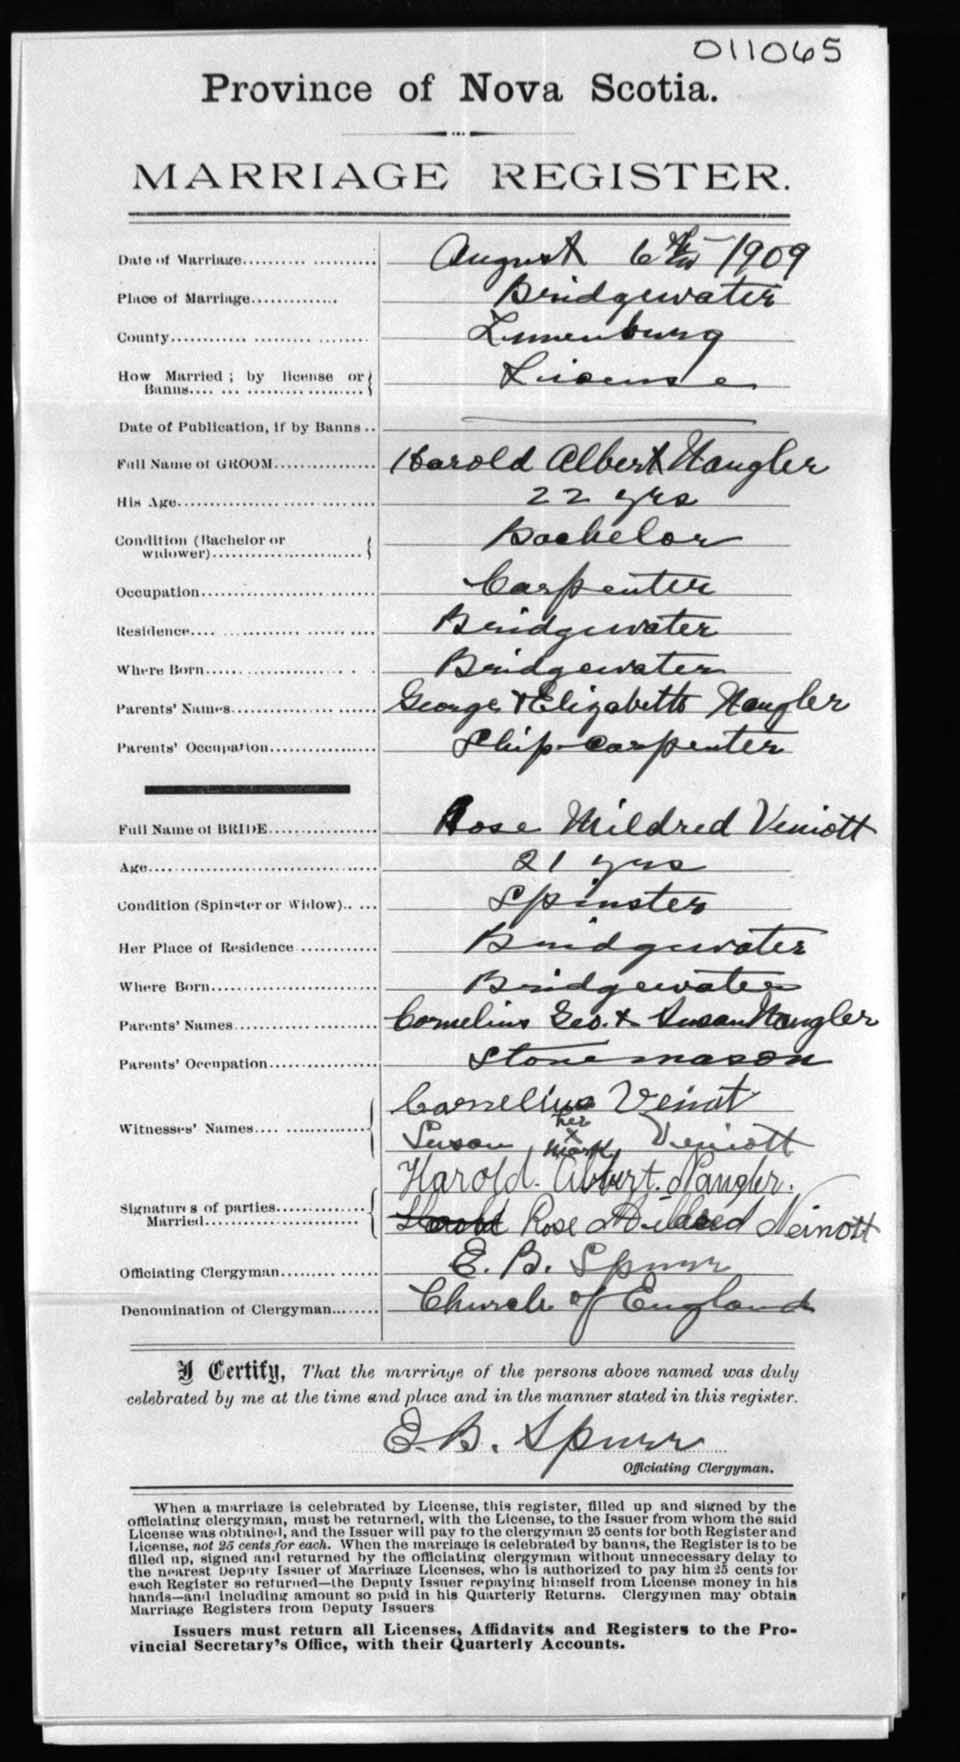 011065
Province of Nova Scotia.
MARRIAGE REGISTER.
Date of Marriage.................... August 6th 1909
Place of Marriage.............. Bridgewater
County.................... Lunenburg
How Married ; by license or License
Banns....................
Date of Publication, if by Banns ..
Full Name of GROOM............... Harold Albert Naugler
His Age.............................. 22 yrs
Condition (Bachelor or Bachelor
widower).........................
Occupation.......................... Carpenter
Residence.................... Bridgewater
Where Born.................... Bridgewater
Parents' Names...................... George & Elizabeth Naugler
Parents' Occupation................ Ship-carpenter
Full Name of BRIDE................ Rose Mildred Veniott
Age.................................... 21 yrs
Condition (Spinster or Widow)..... Spinster
Her Place of Residence ........... Bridgewater
Where Born......................... Bridgewater
Parents' Names..................... Cornelius Geo. & Susan Naugler
Parents' Occupation................ Stone mason
Cornelius Veinot
her
Witnesses' Names.................. Susan x Veniott
mark
Harold. Albert. Naugler.
Signatures of parties..............
Married........................ Harold Rose Mildred Veinott
Officiating Clergyman............... E. B. Spurr
Denomination of Clergyman........ Church of England
I Certify, That the marriage of the persons above named was duly
celebrated by me at the time and place and in the manner stated in this register.
E. B. Spurr
Officiating Clergyman.
When a marriage is celebrated by License, this register, filled up and signed by the
officiating clergyman, must be returned, with the License, to the Issuer from whom the said
License was obtained, and the Issuer will pay to the clergyman 25 cents for both Register and
License, not 25 cents for each. When the marriage is celebrated by banns, the Register is to be
filled up, signed and returned by the officiating clergyman without unnecessary delay to
the nearest Deputy Issuer of Marriage Licenses, who is authorized to pay him 25 cents for
each Register so returned—the Deputy Issuer repaying himself from License money in his
hands—and including amount so paid in his Quarterly Returns. Clergymen may obtain
Marriage Registers from Deputy Issuers
Issuers must return all Licenses, Affidavits and Registers to the Pro-
vincial Secretary's Office, with their Quarterly Accounts.